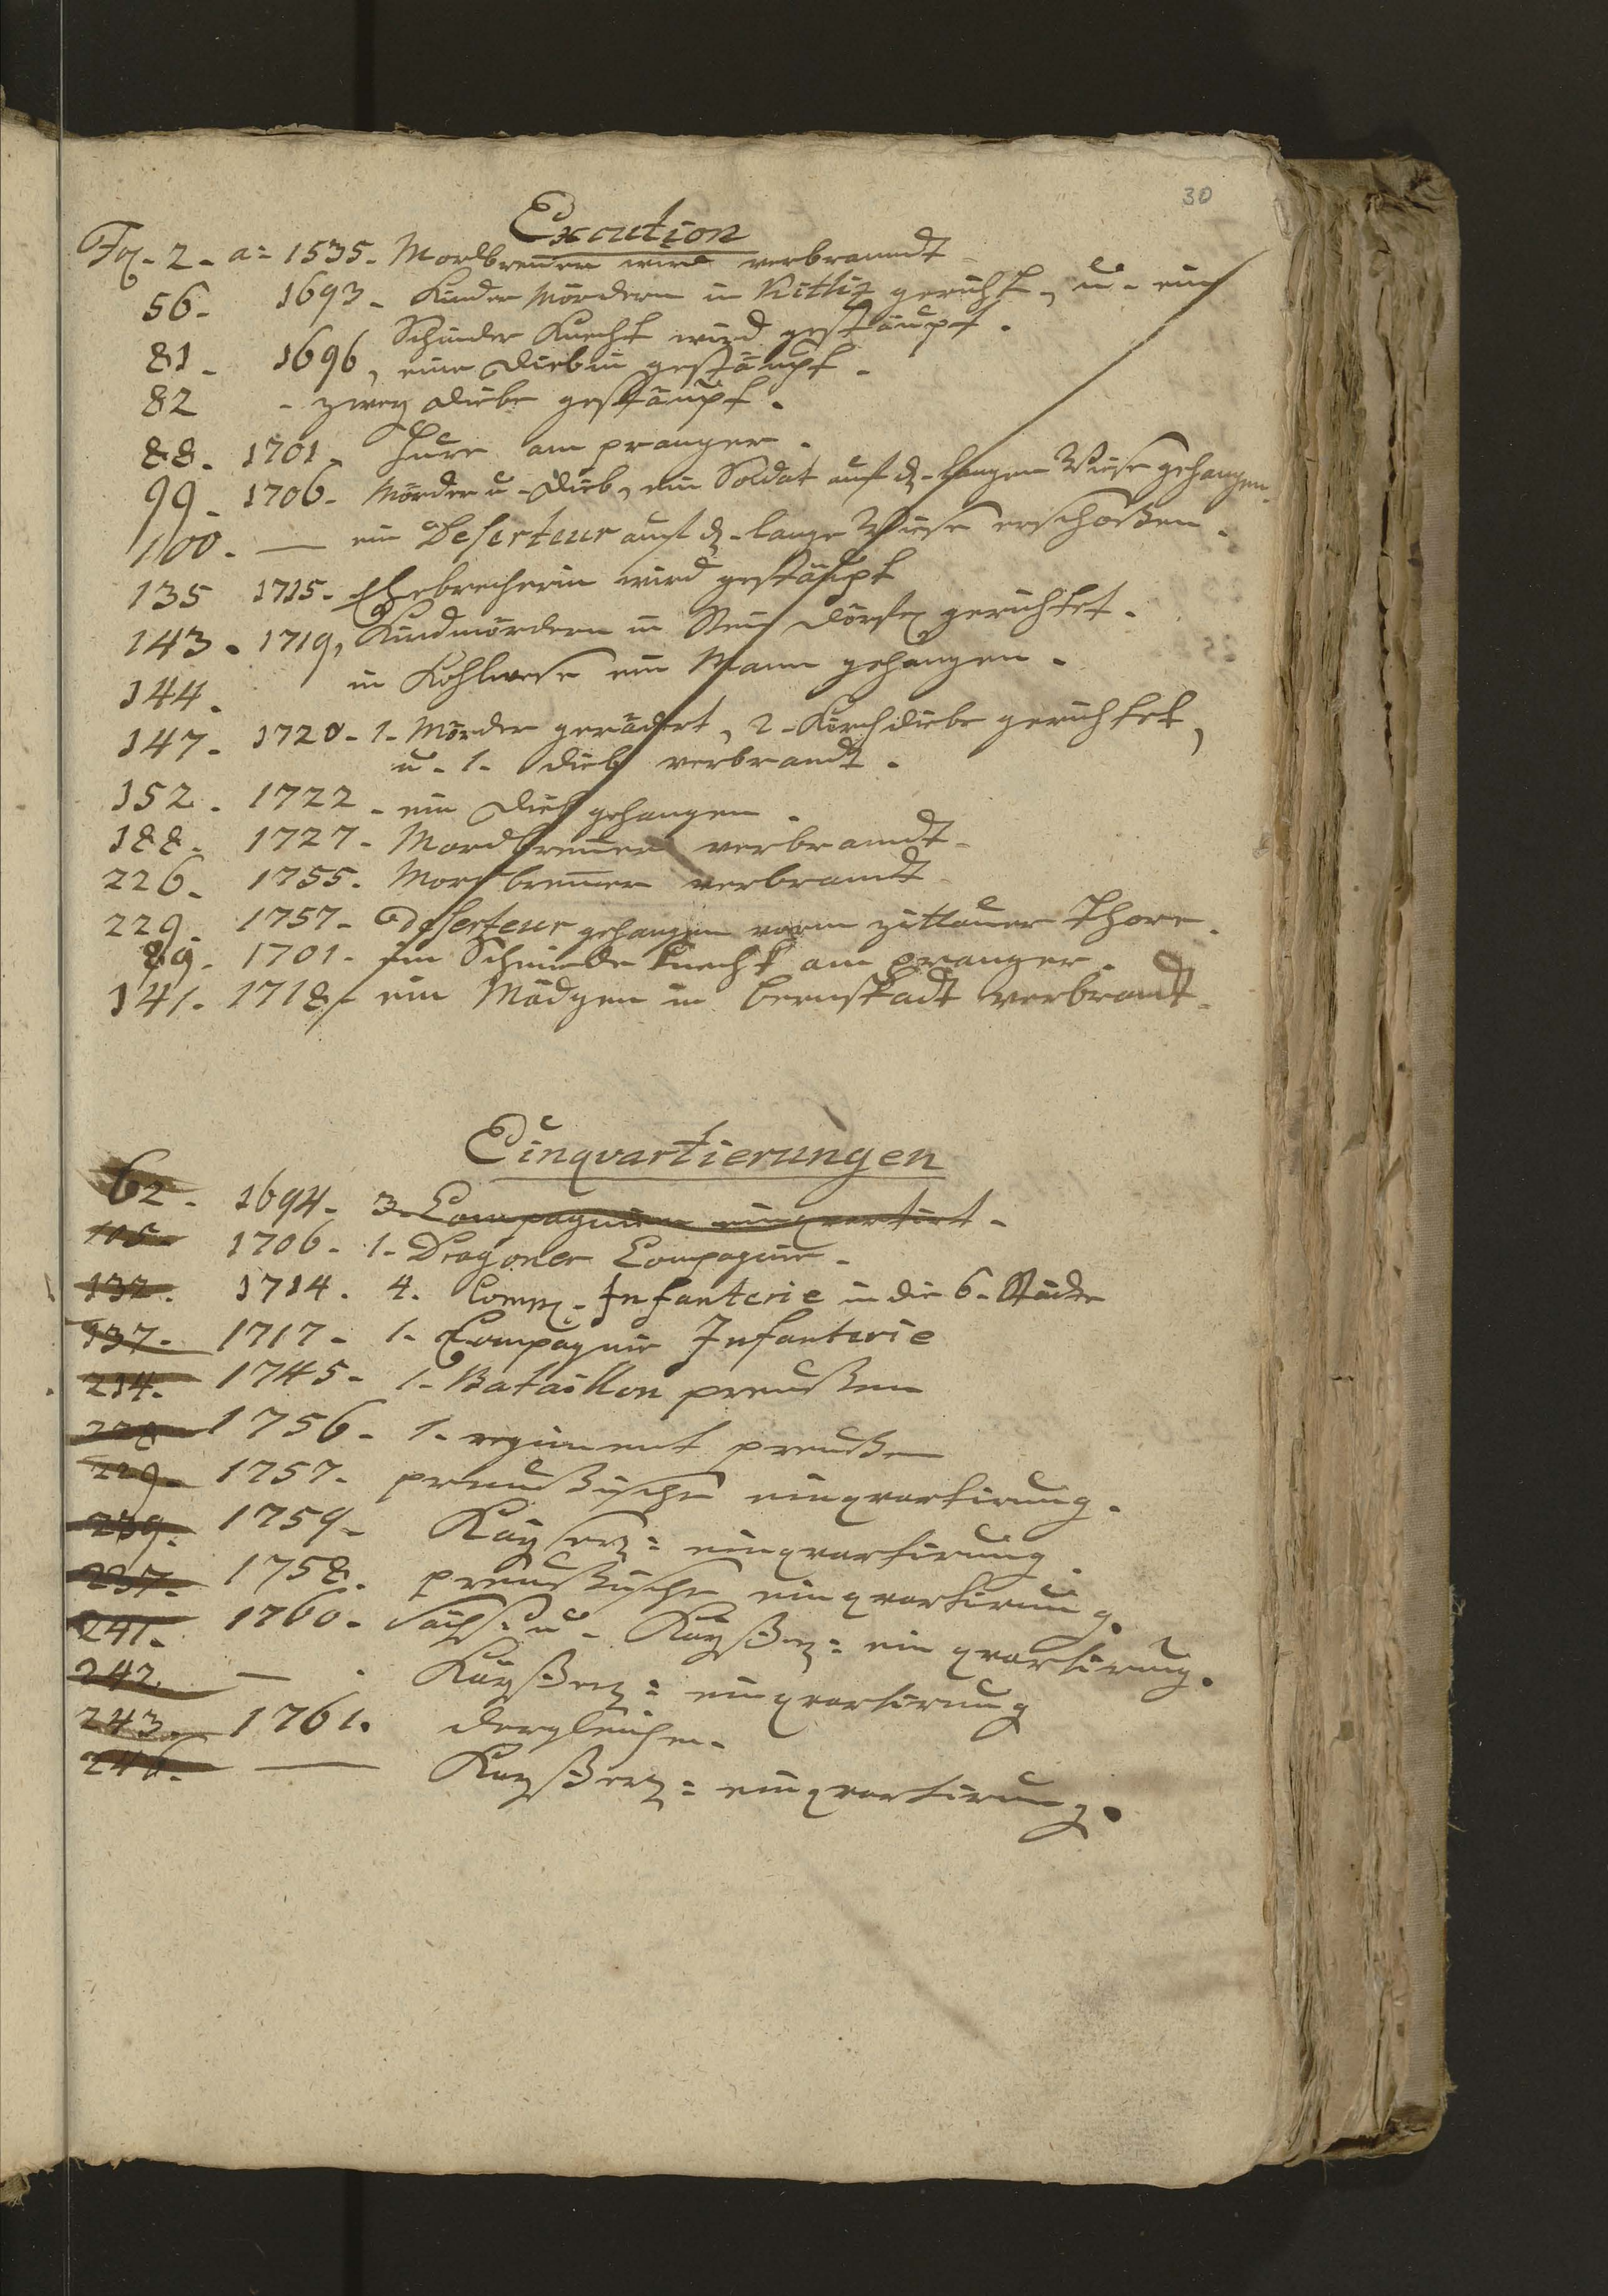 30
Execution
Fol. 2. a= 1535. Mordbrenner wird verbrandt
56. 1693. Kinder Mördern in Kittliz gericht, u. ein
Schinder Knecht wird gestäupt.
81. 1696, eine Diebin gestäupt.
82 - zwey Diebe gestäupt.
88. 1701. Hure am pranger.
99. 1706. Mörder u. Dieb, ein Soldat auf d. langen Wiese gehangen.
100. — ein Deserteur auf d. lange Wiese erschoßen.
135 1715. Ehebrecherin wird gestäupt
143. 1719, Kindmördern in gerichtet.
144. in Kohlwese ein Mann gehangen.
147. 1720. 1. Mörder gerädert, 2. Kirchdiebe gerichtet,
u. 1. Dieb verbrandt.
152. 1722. ein Dieb gehangen.
188. 1727. Mordbrenner verbrandt.
226. 1755. Mordbrenner verbrandt
229. 1757. Deserteur gehangen vorm zittauer Thore.
89. 1701. ein Schinder Knecht am pranger.
141. 1718. ein Mädgen in bernstadt verbrandt.
Einqvartierungen
62. 1694. 3. Compagnien einqvartirt.
105. 1706. 1. Dragoner Compagnie.
132. 1714. 4. Comp. Infanterie in die 6. Städte
137. 1717. 1. Compagnie Infanterie
214. 1745. 1. Bataillon preußen
228 1756. 1. regiment preußen
229. 1757. preußische einqvartirung.
239. 1759. Kayserl: einqvartirung.
237. 1758. preußische einqvartirung.
241. 1760. Sächs. u. Kayßerl: einqvartirung.
242 — . Kayßerl: einqvartirung
243. 1761. dergleichen.
246. — Kayßerl: einqvartirung.